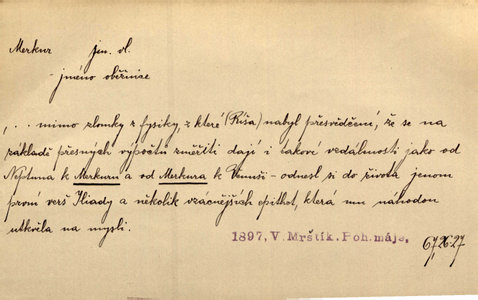 Merkur jm. vl.
- jméno oběžnice
"... mimo zlomky z fysiky, z které (Ríša) nabyl přesvědčení, že se na
základě přesných výpočtů změřiti dají i takové vzdálenosti jako od
Neptuna k Merkuru a od Merkura k Venuši - odnesl si do života jenom
první verš Iliady a několik vzácnějších epithet, která mu náhodou
utkvěla na mysli.
1897, V. Mrštík. Poh. máje,
67,26-27